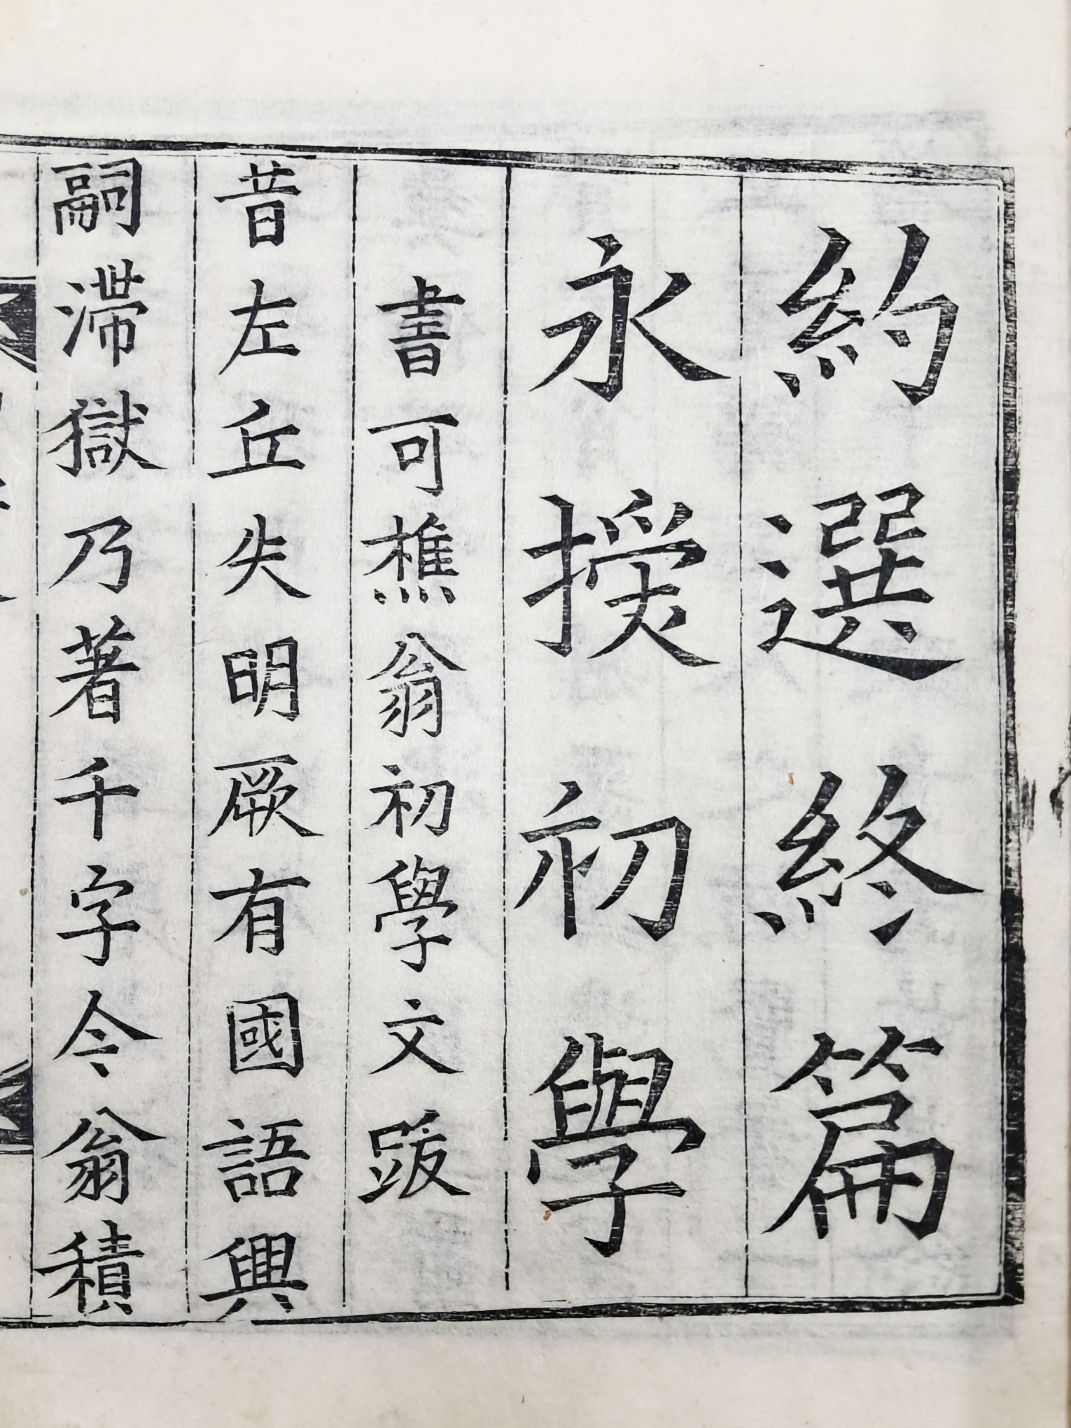 約選終篇
永授初學
書可樵翁初學文跋
昔左丘失明厥有國語興
嗣滯獄乃著千字今翁積